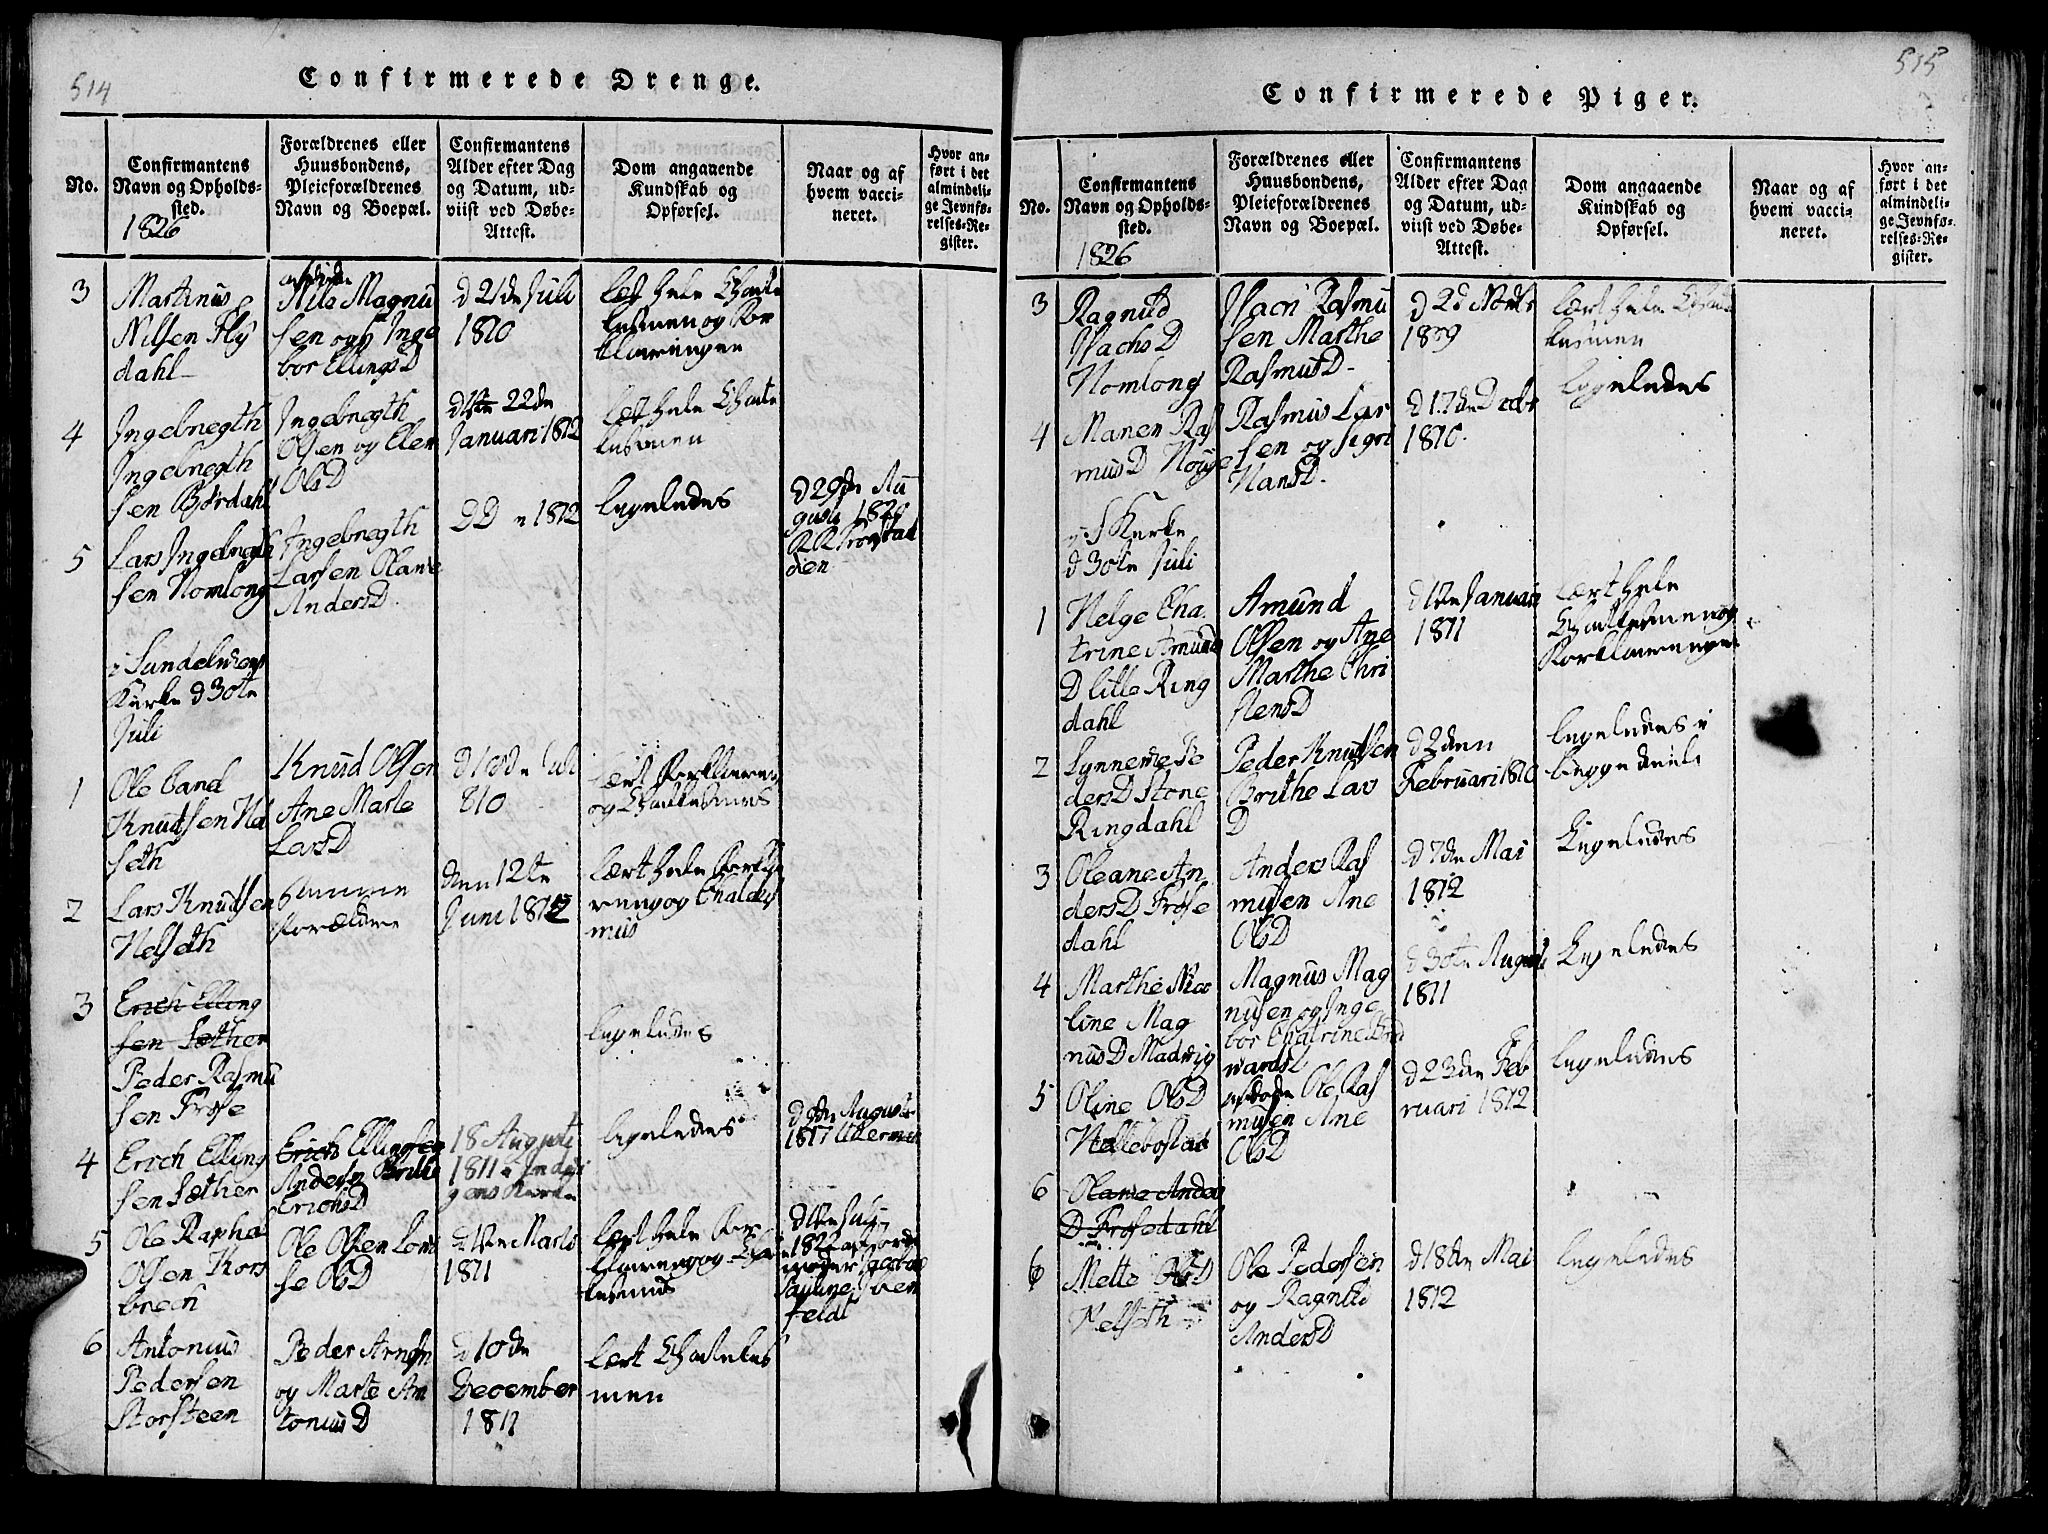 514
Confirmerede Drenge.
No.
Confirmantens
Navn og Opholds-
sted.
1826
Forældrenes eller
Huusbondens,
Pleieforældrenes
Navn og Boepæl.
Confirmantens
Alder efter Dag
og Datum, ud-
viist ved Døbe-
Attest.
Dom angaaende
Kundskab og
Opførsel.
Naar og af
hvem vacci-
neret.
Hvor an-
ført i det
almindeli-
ge Jevnfø-
relses-Re-
gister.
3
Martinus
Nilsen Fly
dahl
Nils Magnu
sen og Inge
bor EllingsD
d 21de Juli
1810
lært hele Chate
kismen og For
klaringen
4
Ingebregth
Ingebregth
sen Børdahl
Ingebregth
Olsen og Ellen
OlsD
22de
Januari 1812
lært hele Chate
kismen
5
Lars Ingebregth
sen Nomlong
Ingebregth
Larsen Olane
AndersD
1812
ligeledes
d 29de Au
gust 1820
i Sundelvens
Kirke d 30te
Juli
1
Ole Cand
Knudsen Nel
seth
Knud Olsen
Ane Marte
LarsD
810
lært Forklaring
og Chatekismus
2
Lars Knudsen
Nelseth
Samme
Forældre
den 12te
Juni 1812
lært hele Forkla
ring og Chateky
mus
3
Erich Elling
sen Sether
Peder Rasmu
sen Frøse
ligeledes
4
Erich Elling
sen Sæther
Erich Ellingsen
Andersen Brithe
ErichsD
18 Augusti
1811
Kirke
ligeledes
August
1817
5
Ole Rapha
Olsen Kors
bren
Ole Olsen Lovi
se OlsD
d 1te Marts
1811
lært hele For
klaring og Cha
tekismus
d 1te Juli
1822 af Jorde
moder
Pauline Sven
feldt
6
Antonius
Pedersen
Storsteen
Peder Arnsen
og Marte An
toniusD
d 10de
December
1811
lært Chatekis
men
515
Confirmerede Piger.
No.
Confirmantens
Navn og Opholds-
sted.
1826
Forældrenes eller
Huusbondens,
Pleieforældrenes
Navn og Boepæl.
Confirmantens
Alder efter Dag
og Datum, ud-
viist ved Døbe-
Attest.
Dom angaaende
Kundskab og
Opførsel.
Naar og af
hvem vacci-
neret.
Hvor an-
ført i det
almindeli-
ge Jevnfø-
relses-Re-
gister.
3
Ragnild
IsachsD
Nomlong
Isach Rasmu
sen Marthe
RasmusD
lært hele Chate
kismen
4
Maren Ras
musD Nouge
Rasmus Lar
sen og Sigri
HansD.
d 17de Decbr
1810.
ligeledes
i S Kirke
d 30te Juli
1
Helge Cha
trine Amunds
D lille Ring
dahl
Amund
Olsen og Ane
Marthe Chri
stensD
d 1te Januari
1811
lært hele
Chattesmen og
Forklaringen
2
Synneve Pe
dersD Store
Ringdahl
Peder Knudsen
Brithe Lars
D
d 2den
Februari 1810
ligeledes i
begge deele
3
Oleane An
dersD Frøse
dahl
Anders Ras
musen Ane
OlsD
d 7de Mai
1812
Ligeledes
4
Marthe Nico
line Mag
nusD Madvig
Magnus Mag
nusen og Inge
bor Chatrine
d 30te August
1811
Ligeledes
5
Oline OlsD
Hellebostad
Ole Ras
musen Ane
OlsD
d 23de Feb
ruari 1812
ligeledes
6
Olane Anders
D Frøsedahl
6
Mette OlsD
Nelseth
Ole Pedersen
og Ragnild
AndersD
d 18de Mai
1812
ligeledes